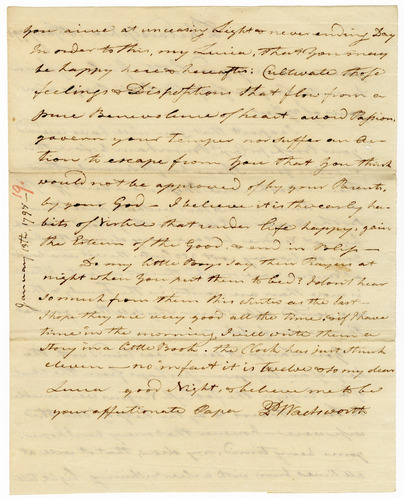 you arive at unceasing Light & never ending Day
In order to this, my Lucia, that you may
be happy here & hereafter: Cultivate those
feelings & Dispositions that flow from a
pure Benevolence of heart avoid Passion,
govern your temper nor suffer an Ac-
tion to escape from you that you think
would not be approved of by your Parents,
by your God — I believe it is the early ha-
bits of Virtue that render life happy, gain
the Esteem of the Good, & end in Bliss —
Do my little Boys say their Prayers at
night when you put them to bed? I don't hear
so much from them this Winter as the last —
I hope they are very good all the time, & if I have
time in the morning, I will write them a
story in a little Book. the Clock has just struck
eleven — no in fact it is twelve & so my dear
Lucia good Night, & believe me to be
your affectionate Papa Wadsworth
January 13th 1794 —
19